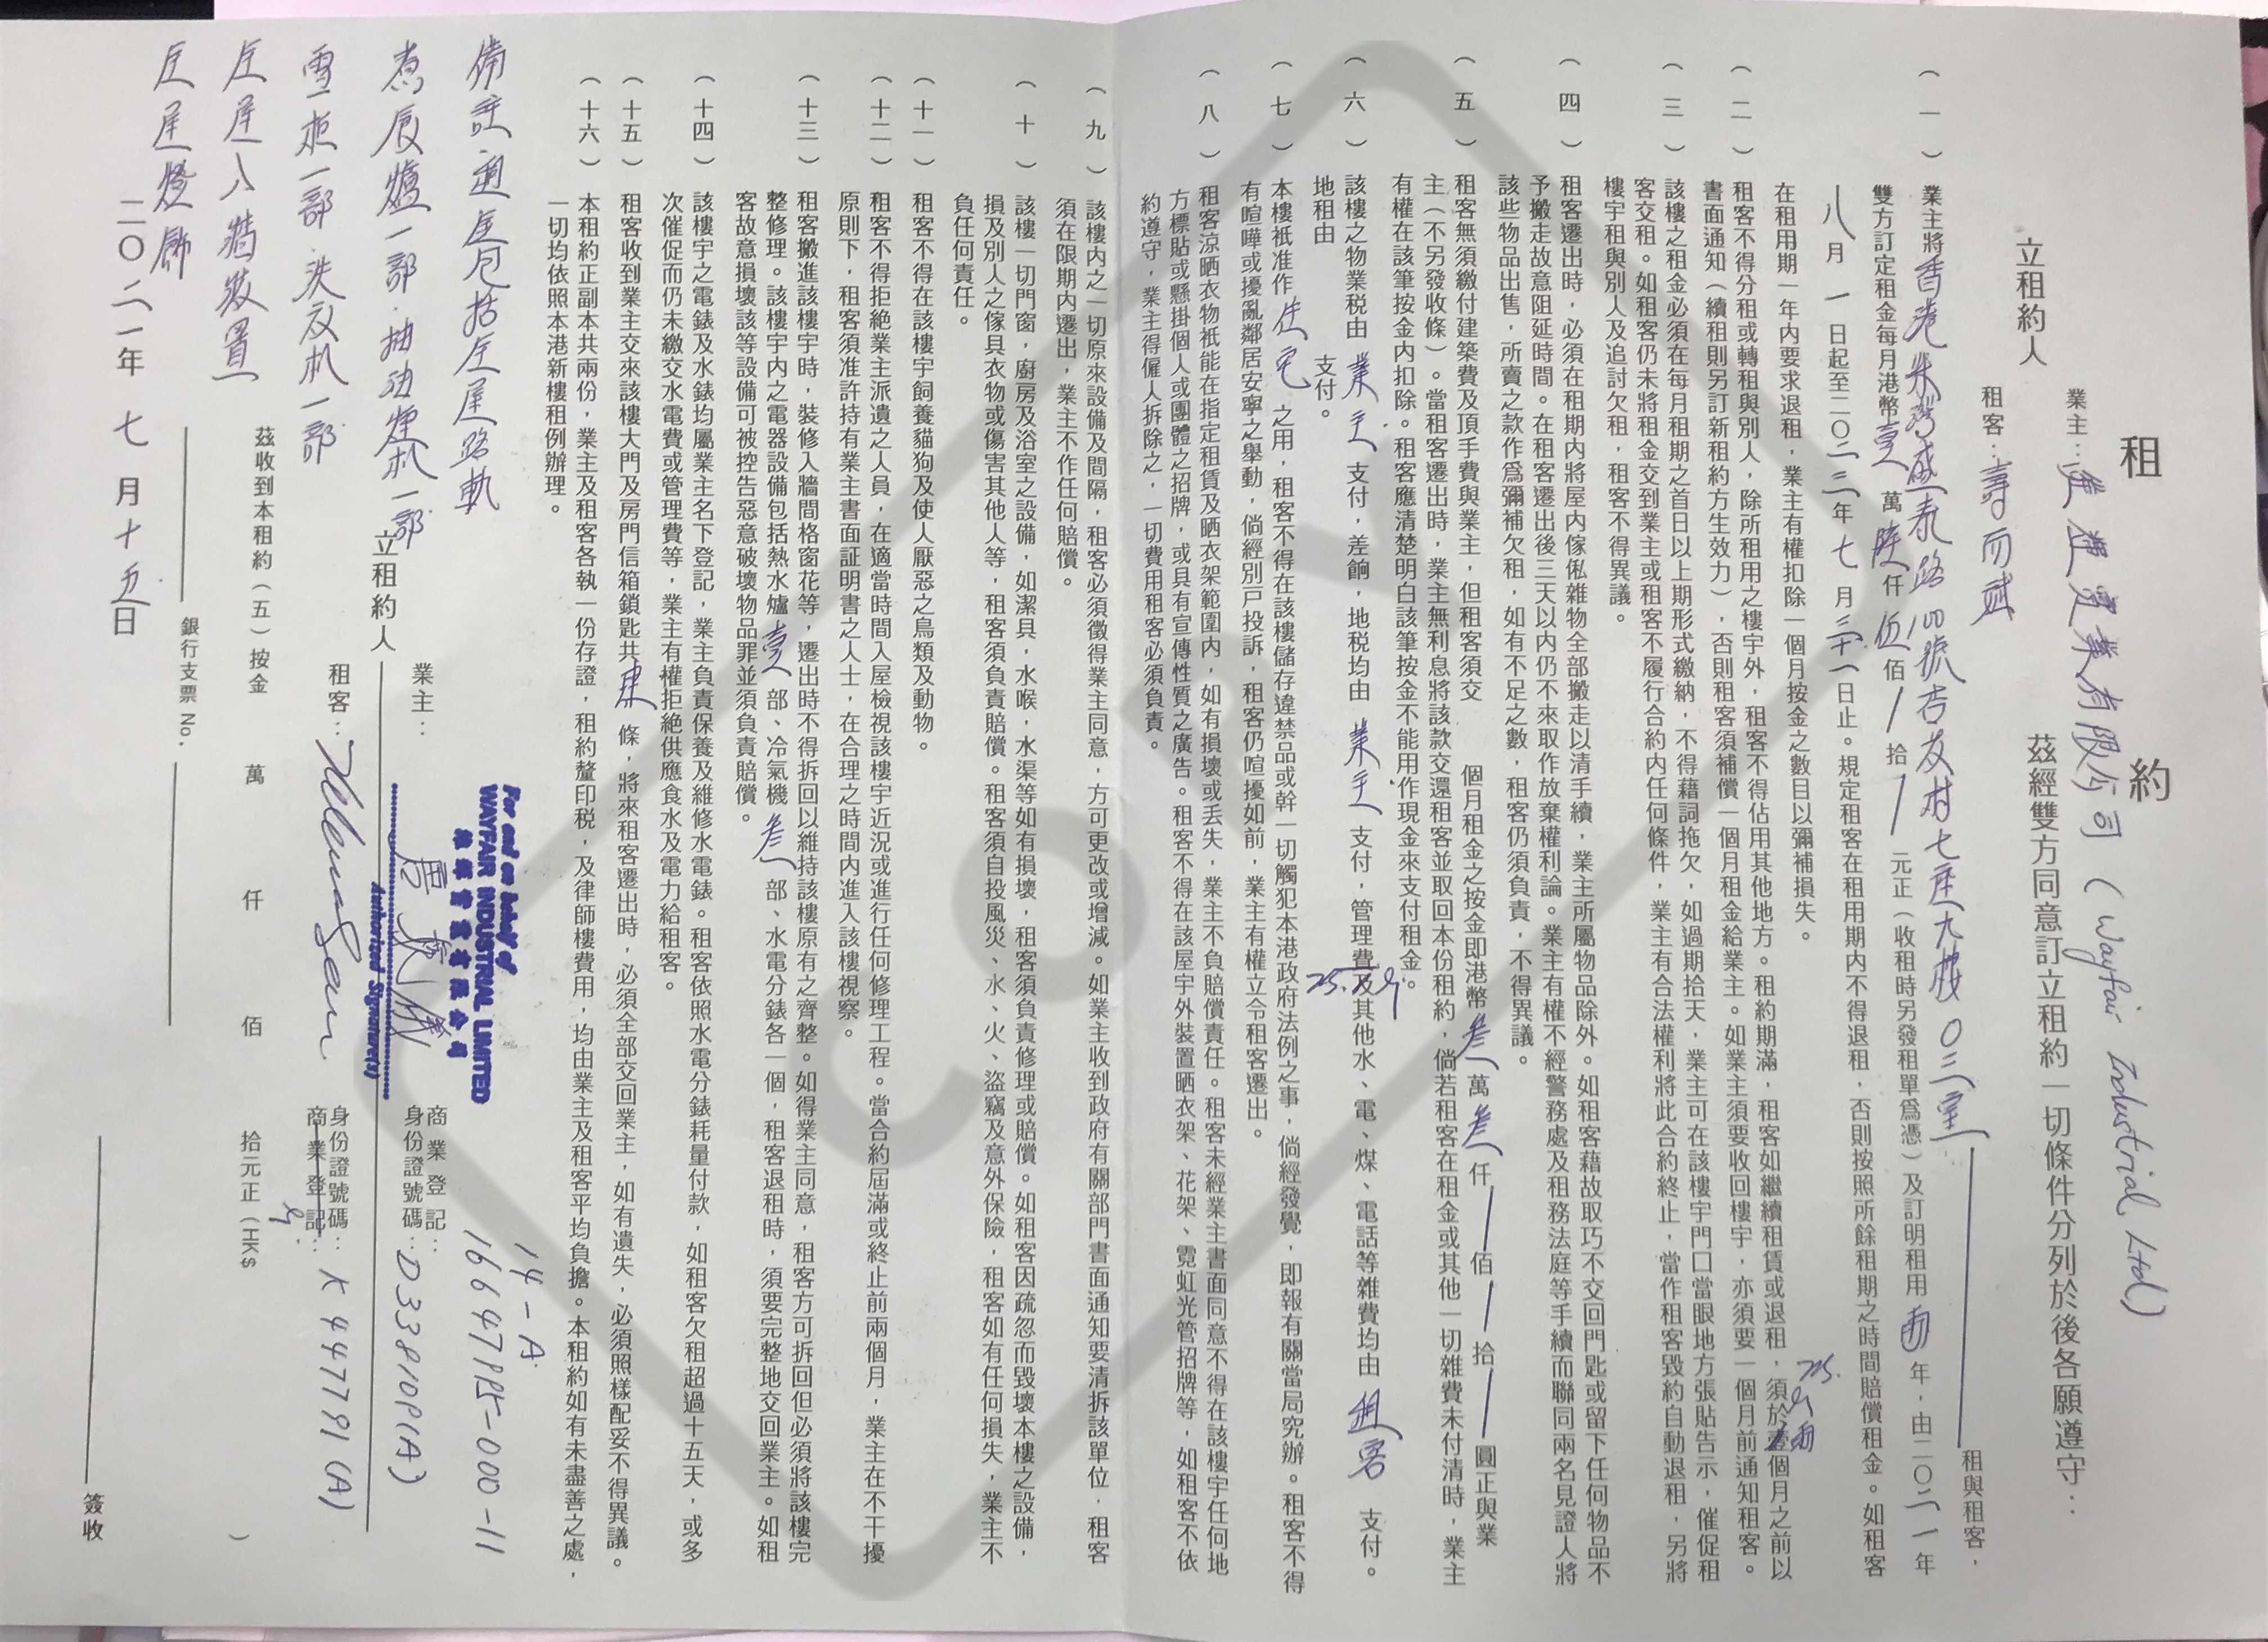 租約
立租約人
業主：進輝實業有限公司（Wayfair Industrial Ltd）
租客：
茲經雙方同意訂立租約一切條件分列於後各願遵守：
（一）業主將香港柴灣盛泰路100號杏花村七座九樓03室 租與租客，
雙方訂定租金每月港幣壹萬陸仟伍佰/拾/元正（收租時另發租單爲憑）及訂明租用兩年，由二〇二一年
八月一日起至二〇二三年七月三十一日止。規定租客在租用期內不得退租，否則按照所餘租期之時間賠償租金。如租客
在租用期一年內要求退租，業主有權扣除一個月按金之數目以彌補損失。
（二）租客不得分租或轉租與別人，除所租用之樓宇外，租客不得佔用其他地方。租約期滿，租客如繼續租賃或退租，須於壹兩個月之前以
書面通知（續租則另訂新租約方生效力），否則租客須補償一個月租金給業主。如業主須要收回樓宇，亦須要一個月前通知租客。
（三）該樓之租金必須在每月租期之首日以上期形式繳納，不得藉詞拖欠，如過期拾天，業主可在該樓宇門口當眼地方張貼告示，催促租
客交租。如租客仍未將租金交到業主或租客不履行合約內任何條件，業主有合法權利將此合約終止，當作租客毀約自動退租，另將
樓宇租與別人及追討欠租，租客不得異議。
（四）租客遷出時，必須在租期內將屋內傢俬雜物全部搬走以清手續，業主所屬物品除外。如租客藉故取巧不交回門匙或留下任何物品不
予搬走故意阻延時間。在租客遷出後三天以內仍不來取作放棄權利論。業主有權不經警務處及租務法庭等手續而聯同兩名見證人將
該些物品出售，所賣之款作爲彌補欠租，如有不足之數，租客仍須負責，不得異議。
（五）租客無須繳付建築費及頂手費與業主，但租客須交 個月租金之按金即港幣叁萬叁仟/佰/拾/圓正與業
主（不另發收條）。當租客遷出時，業主無利息將該款交還租客並取回本份租約，倘若租客在租金或其他一切雜費未付清時，業主
有權在該筆按金內扣除。租客應清楚明白該筆按金不能用作現金來支付租金。
（六）該樓之物業稅由業主支付，差餉，地稅均由業主支付，管理費及其他水、電、煤、電話等雜費均由租客支付。
地租由 支付。
（七）本樓祇准作住宅之用，租客不得在該樓儲存違禁品或幹一切觸犯本港政府法例之事，倘經發覺，即報有關當局究辦。租客不得
有喧嘩或擾亂鄰居安寧之舉動，倘經別戶投訴，租客仍喧擾如前，業主有權立令租客遷出。
（八）租客涼晒衣物祇能在指定租賃及晒衣架範圍內，如有損壞或丟失，業主不負賠償責任。租客未經業主書面同意不得在該樓宇任何地
方標貼或懸掛個人或團體之招牌，或具有宣傳性質之廣告。租客不得在該屋宇外裝置晒衣架、花架、霓虹光管招牌等，如租客不依
約遵守，業主得僱人拆除之，一切費用租客必須負責。
（九）該樓內之一切原來設備及間隔，租客必須徵得業主同意，方可更改或增減。如業主收到政府有關部門書面通知要清拆該單位，租客
須在限期內遷出，業主不作任何賠償。
（十）該樓一切門窗，廚房及浴室之設備，如潔具，水喉，水渠等如有損壞，租客須負責修理或賠償。如租客因疏忽而毀壞本樓之設備，
損及別人之傢具衣物或傷害其他人等，租客須負責賠償。租客須自投風災、水、火、盜竊及意外保險，租客如有任何損失，業主不
負任何責任。
（十一）租客不得在該樓宇飼養貓狗及使人厭惡之鳥類及動物。
（十二）租客不得拒絶業主派遣之人員，在適當時間入屋檢視該樓宇近況或進行任何修理工程。當合約屆滿或終止前兩個月，業主在不干擾
原則下，租客須准許持有業主書面証明書之人士，在合理之時間內進入該樓視察。
（十三）租客搬進該樓宇時，裝修入牆間格窗花等，遷出時不得拆回以維持該樓原有之齊整。如得業主同意，租客方可拆回但必須將該樓完
整修理。該樓宇內之電器設備包括熱水爐壹部、冷氣機叁部、水電分錶各一個，租客退租時，須要完整地交回業主。如租
客故意損壞該等設備可被控告惡意破壞物品罪並須負責賠償。
（十四）該樓宇之電錶及水錶均屬業主名下登記，業主負責保養及維修水電錶。租客依照水電分錶耗量付款，如租客欠租超過十五天，或多
次催促而仍未繳交水電費或管理費等，業主有權拒絶供應食水及電力給租客。
（十五）租客收到業主交來該樓大門及房門信箱鎖匙共 條，將來租客遷出時，必須全部交回業主，如有遺失，必須照樣配妥不得異議。
（十六）本租約正副本共兩份，業主及租客各執一份存證，租約釐印稅，及律師樓費用，均由業主及租客平均負擔。本租約如有未盡善之處，
一切均依照本港新樓租例辦理。
備註：適屋包括全屋路軌
煮食爐一部．抽油煙机一部
雪柜一部．洗衣机一部
全屋入牆裝置
全屋燈飾
立租約人
業主：
For and on behalf of
WAYFAIR INDUSTRIAL LIMITED
進輝實業有限公司
Authorized Signature(s)
商業登記：
身份證號碼：D338109(A)
14-A
租客：
身份證號碼：
商業登記： X447791(A)
茲收到本租約（五）按金 萬 仟 佰 拾元正（HK$ ）
銀行支票 No.
簽收
二〇二一年七月十五日